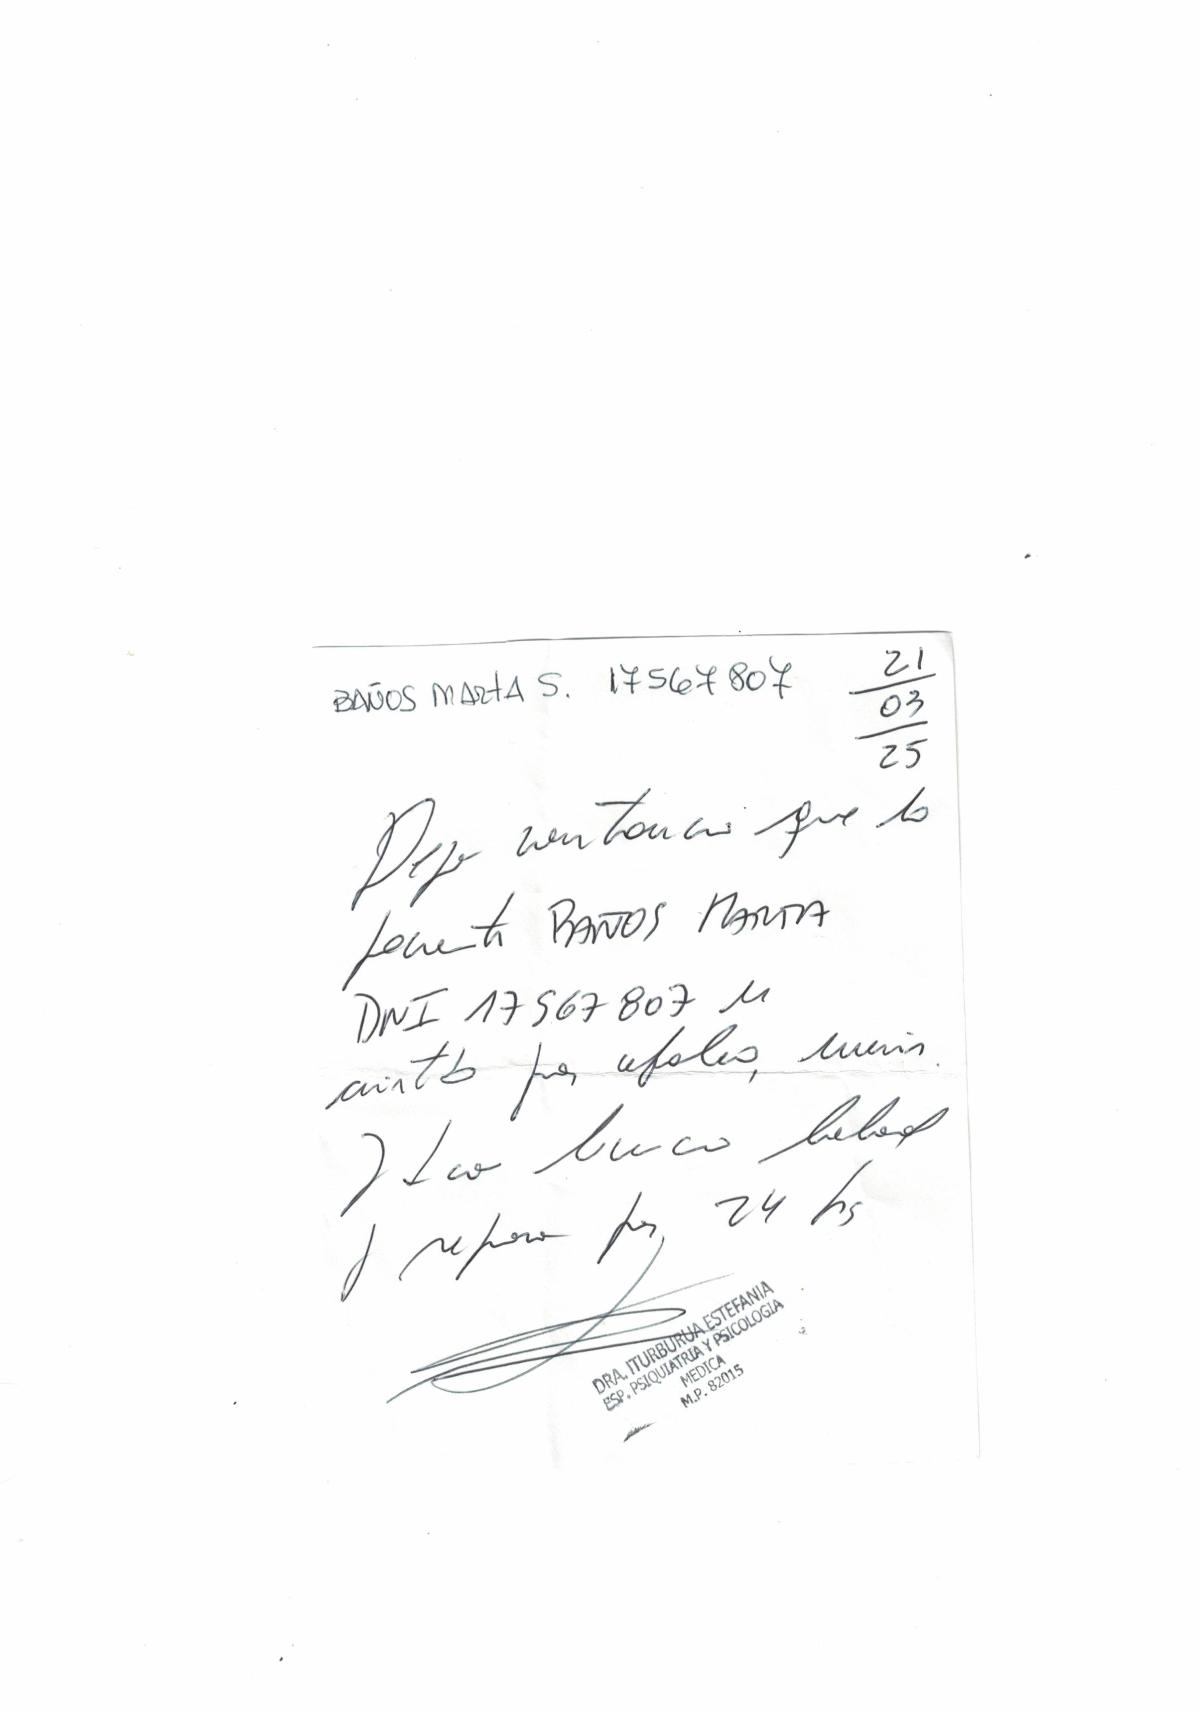 BAÑOS MARTA S. 17567807
21
03
25
Dejo constancia que la
paciente BAÑOS MARTA
DNI 17567807 es
asistida por cefalea,
licencia laboral
y reposo por 24 hs
DRA. ITURBURUA ESTEFANIA
ESP. PSIQUIATRIA Y PSICOLOGIA
MEDICA
M.P. 82015